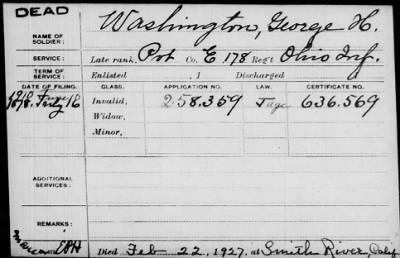 DEAD
NAME OF SOLDIER: Washington, George H.
SERVICE: Late rank, Pvt Co. E 178 Reg't Ohio Inf.
TERM OF SERVICE: Enlisted , 1 Discharged
DATE OF FILING. CLASS. APPLICATION NO. LAW. CERTIFICATE NO.
1878. July 16 Invalid, 258.359 636.569
Widow,
Minor,
ADDITIONAL SERVICES:
REMARKS:
Died Feb 22, 1927, at Smith River, Calif